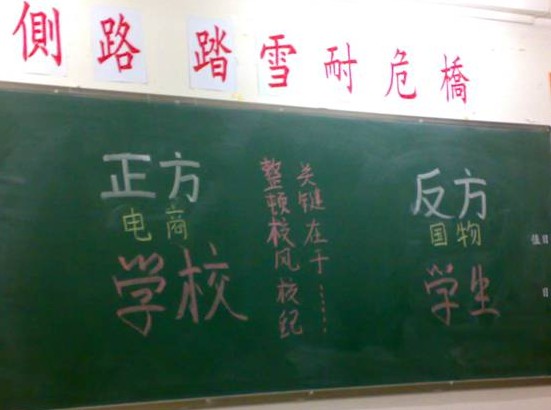 側路踏雪耐危橋
正方
电商
学校
整顿校风校纪
关键在于……
反方
国物
学生
值日
日